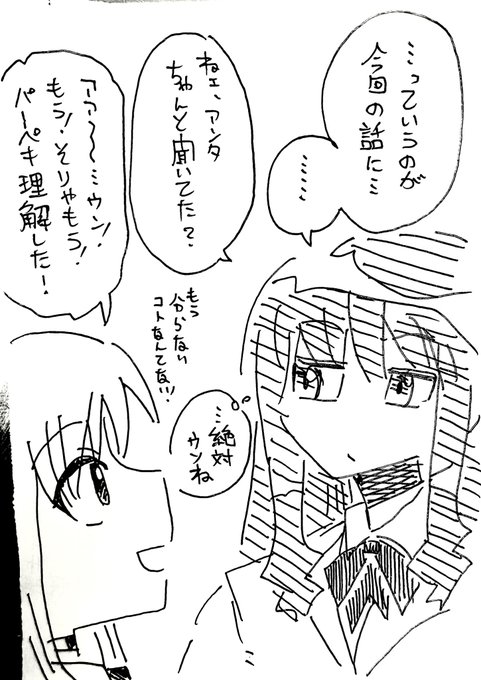 …っていうのが
今回の話に…
……
ねェ、アンタ
ちゃんと聞いてた？
アァ〜〜ミウン！
もう！そりゃもう！
パーペキ理解した！
もう
分らない
コトなんてない！
…絶対
ウンね